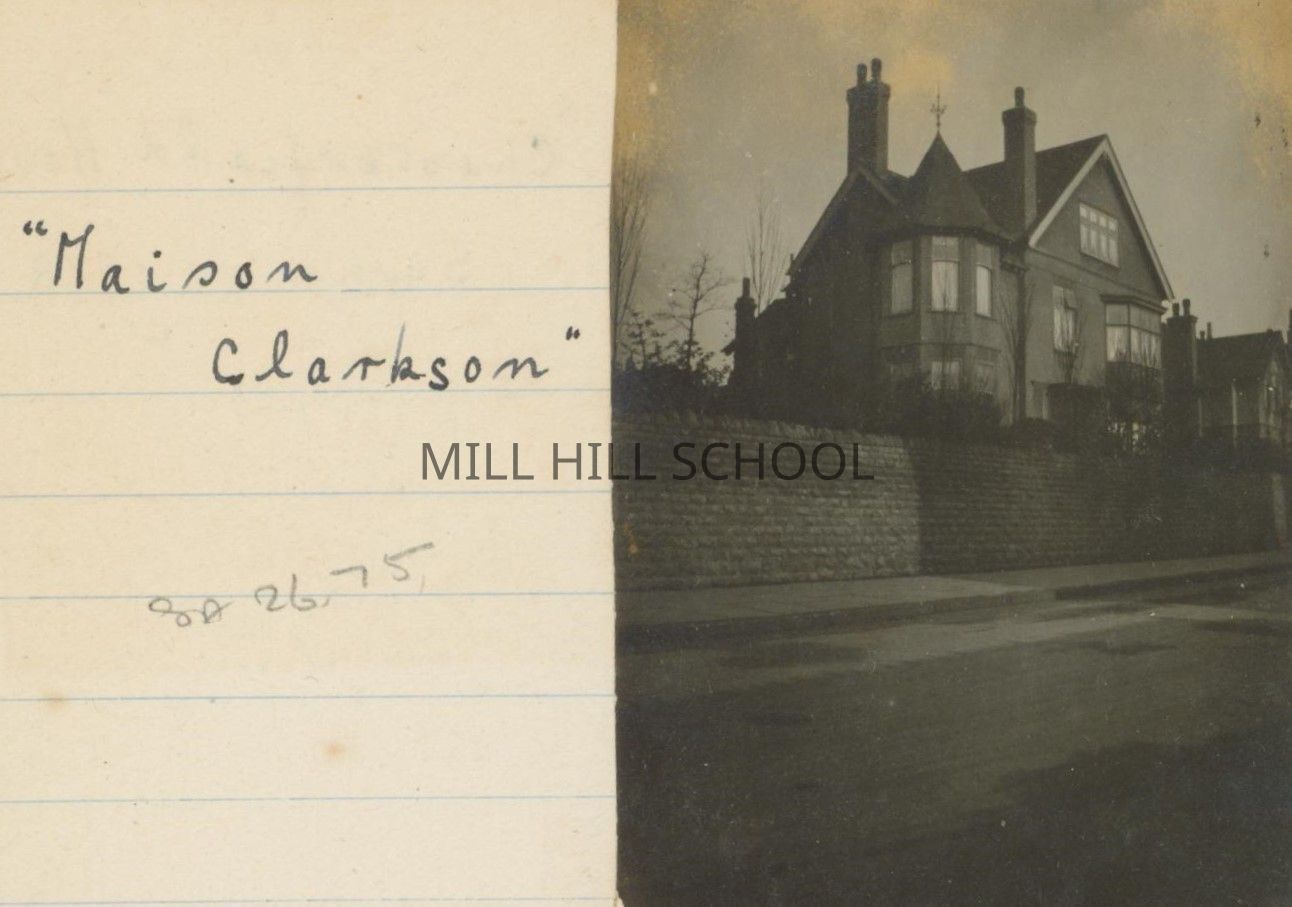 "Maison
Clarkson"
MILL HILL SCHOOL
26.75.